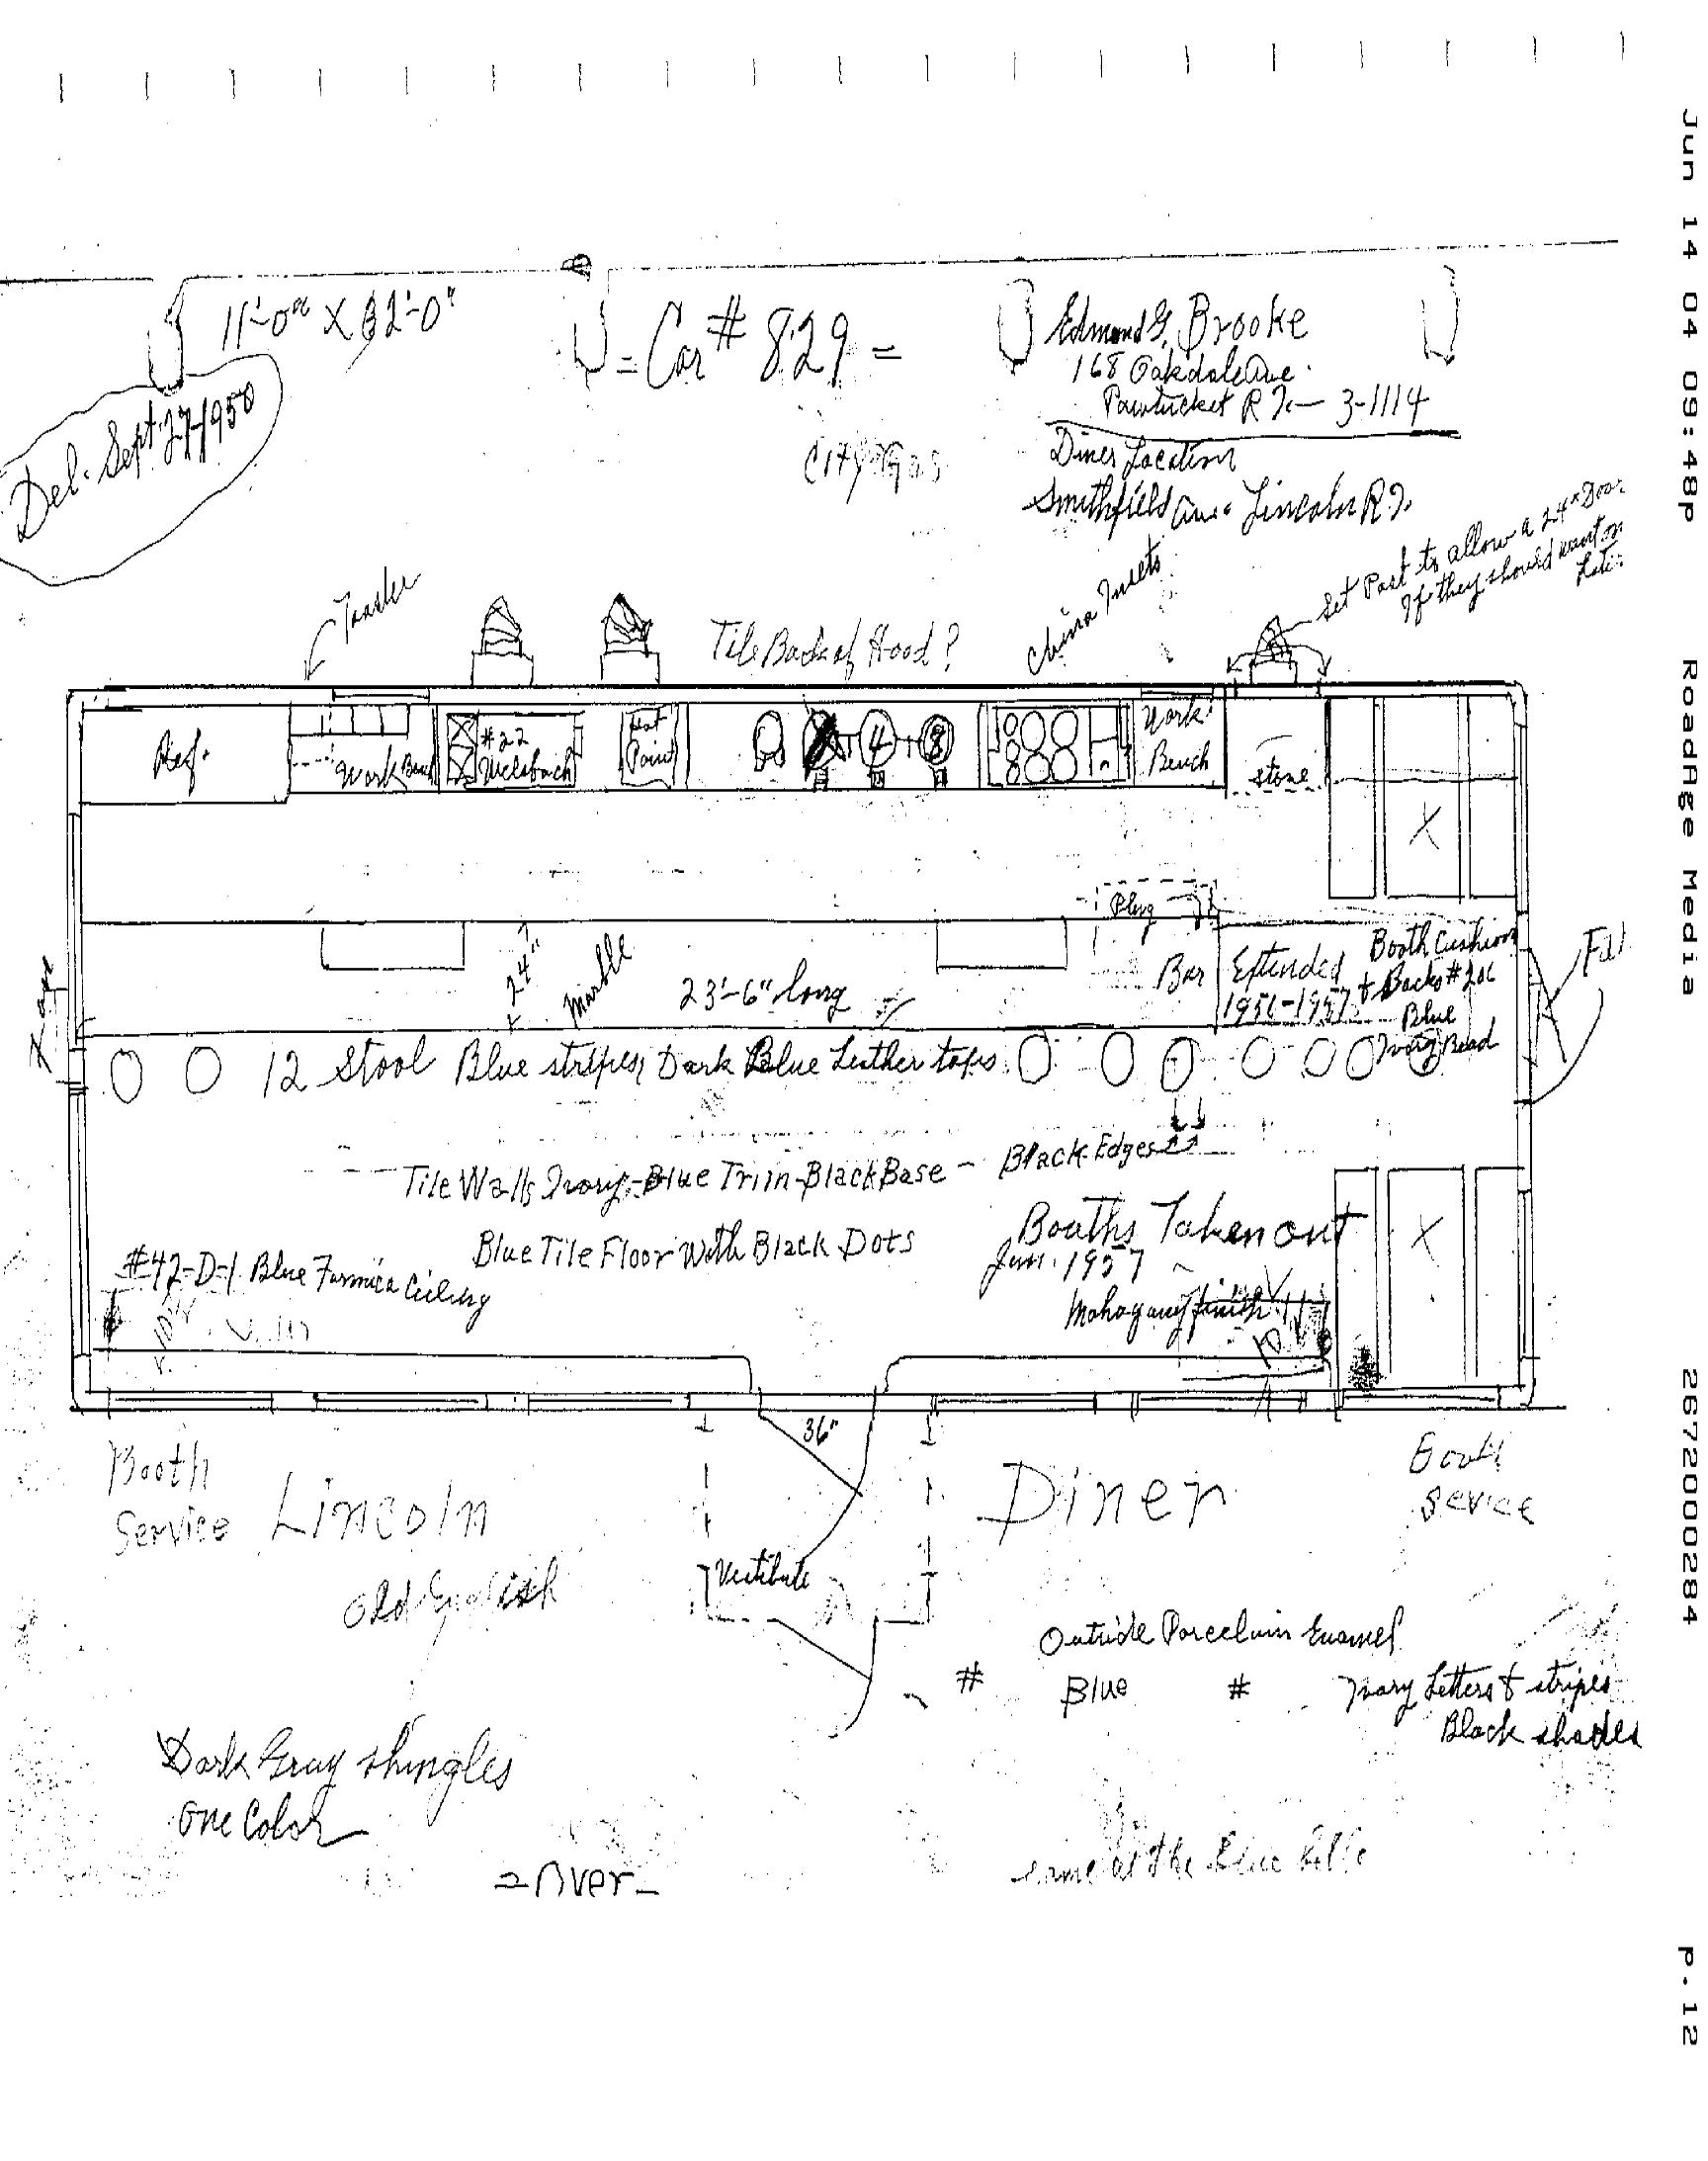 Jun 14 04 09:48p RoadAge Media 2672000284 p.12
11'-0" X 32'-0"
= Car # 829 =
Edmond G. Brooke
168 Oakdale Ave.
Pawtucket R I. — 3-1114
Del. Sept. 27-1950
City Gas
Diner Location
Smithfield Ave. Lincoln R I.
Toaster
Tile Back of Hood?
China Insets
Set Post to allow a 24" Door
If they should want on
Later
Ref.
Work Bench
#22
Welsbach
Hot
Point
4
8
Work
Bench
stone
X
Plug
24"
Marble
23'-6" long
Bar
Extended
1956-1957
Booth Cushions
+ Backs #206
Blue
Ivory Bead
12 Stool Blue stripes, Dark Blue Leather tops
Tile Walls Ivory-Blue Trim-Black Base - Black Edges
Blue Tile Floor With Black Dots
Booths Taken out
Jan. 1957
X
#42-D-1 Blue Formica Ceiling
Mahogany finish
10"
36"
Booth
Service
Lincoln
Diner
Booth
Sevice
Old English
Vestibule
Outside Porcelain Enamel
# Blue # Ivory Letters & stripes
Black shades
Dark Gray shingles
One Color
=Over-
same as the Blue Belle